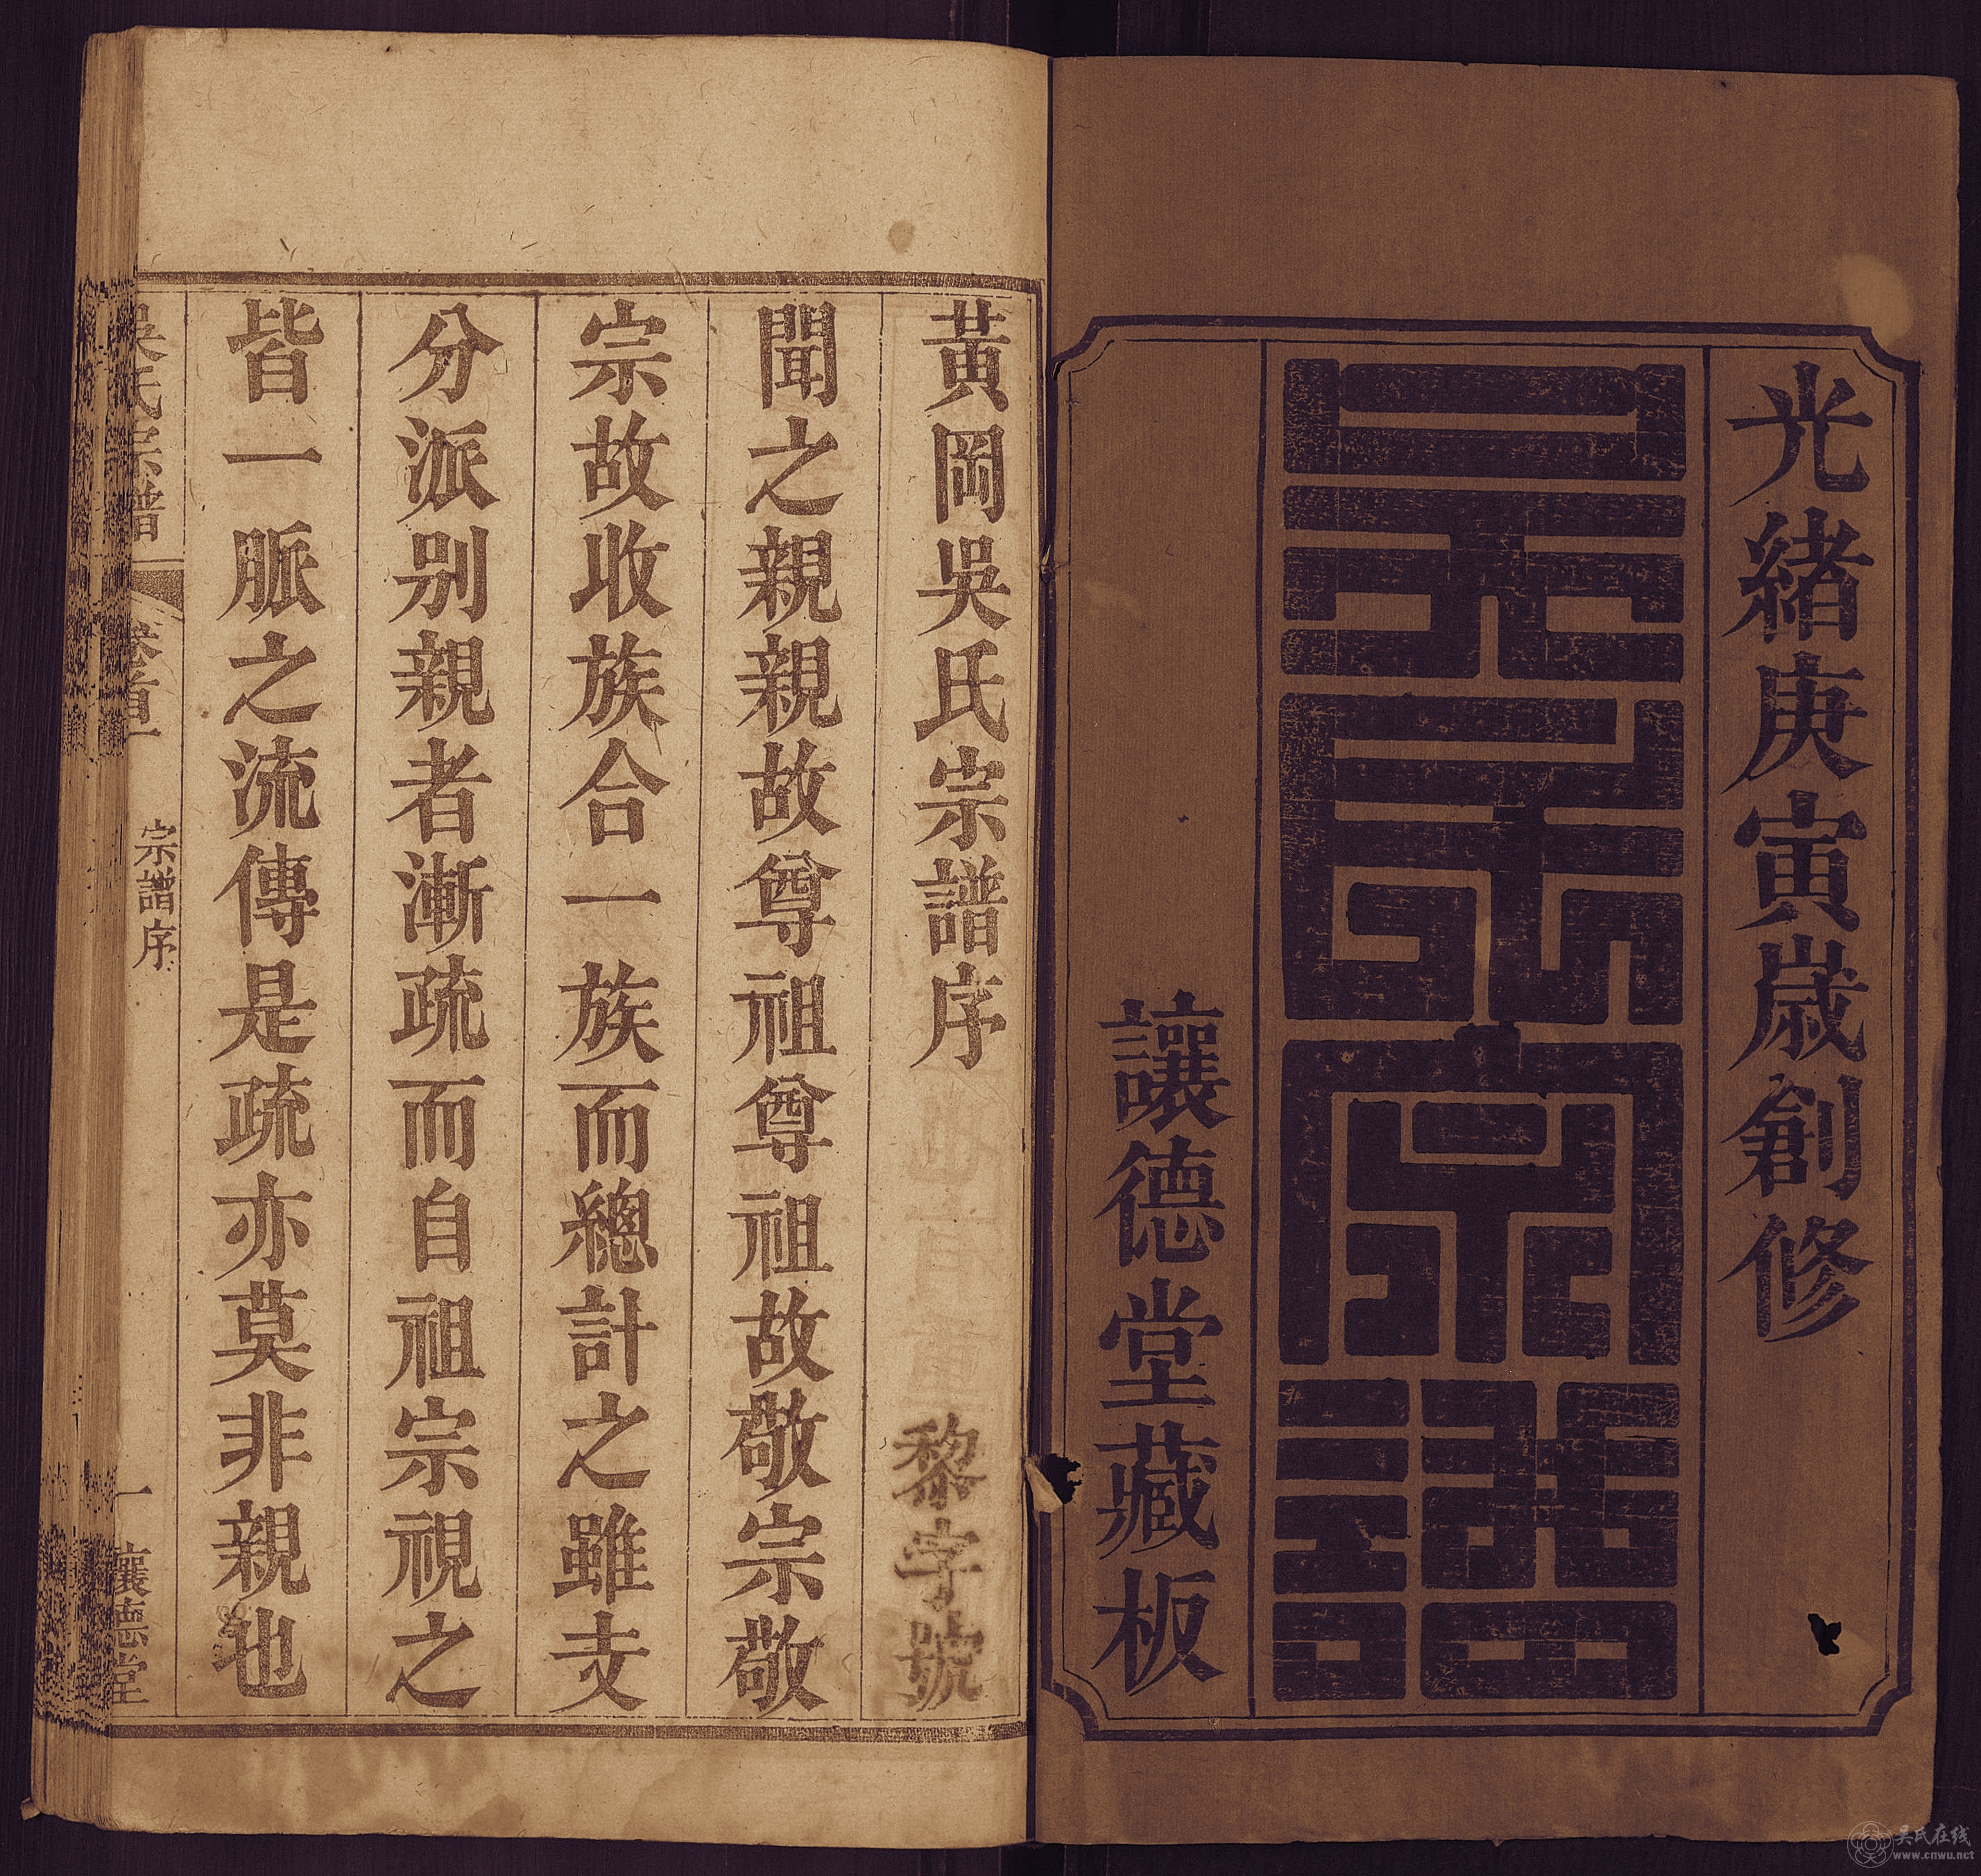 光緒庚寅歲創修
吳氏宗譜
讓德堂藏板
黃岡吳氏宗譜序
黎字號
聞之親親故尊祖尊祖故敬宗敬
宗故收族合一族而總計之雖支
分派别親者漸疏而自祖宗視之
皆一脈之流傳是疏亦莫非親也
吳氏宗譜
卷首一
宗譜序
一
讓德堂
吴氏在线
www.cnwu.net